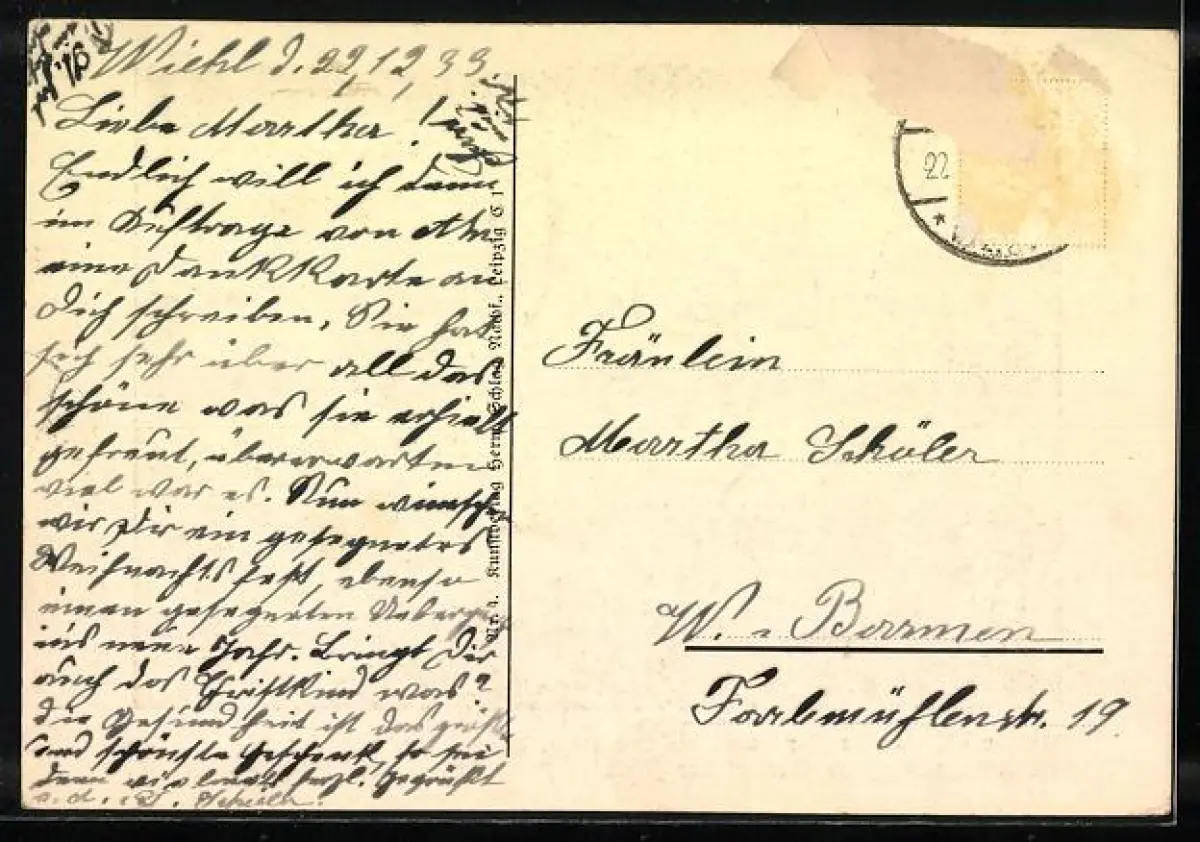 Wiehl d. 22/12 33.
Liebe Martha!
Endlich will ich denn
im Auftrage von
eine Dankkarte an
Dich schreiben, Sie hat
sich sehr über all das
schöne was sie erhielt
gefreut, überwarten
viel war es. Nun wünschen
wir Dir ein gesegnetes
Weihnachtsfest, ebenso
einen gesegneten Uebergang
ins neue Jahr. Bringt Dir
auch das Christkind was?
die Gesundheit ist das größte
und schönste Geschenk, so sei
denn vielmals herzl. gegrüßt
Nr. 4. Kunstverlag Herm. Schlag Nachf., Leipzig C 1
22
Fräulein
Martha Schüler
W.-Barmen
Farbmühlenstr. 19